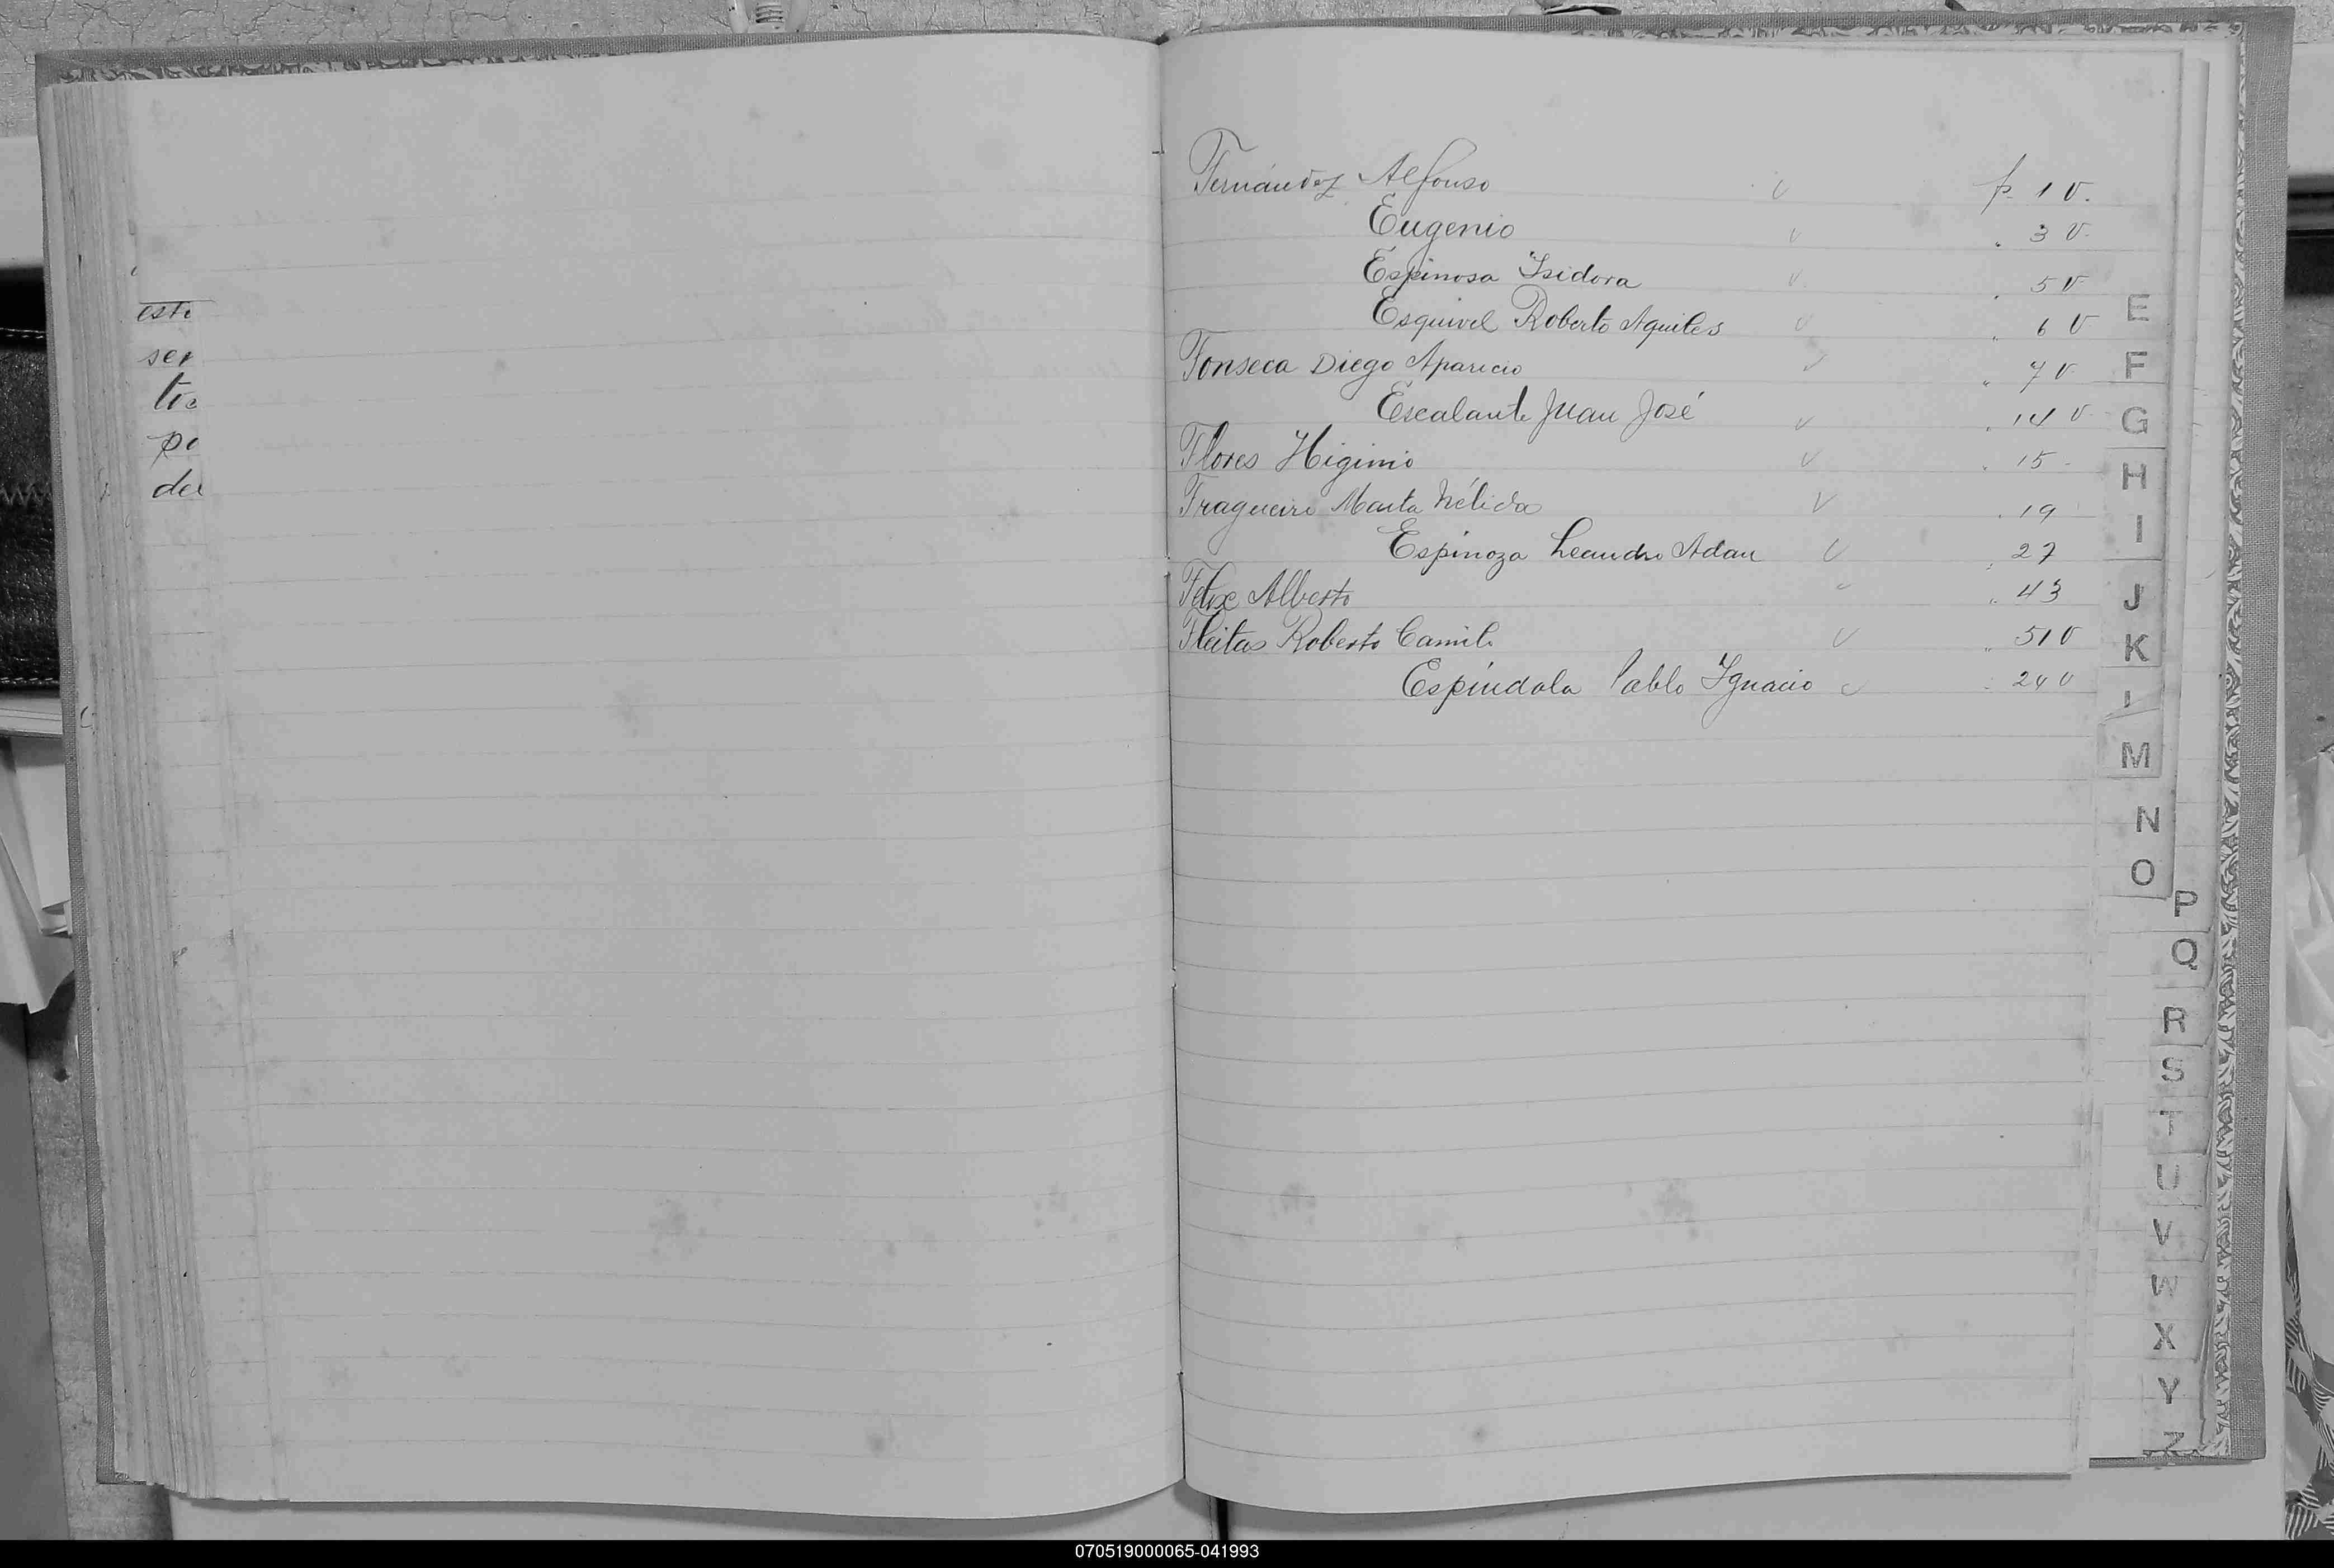 este
ser
Fernández Alfonso v p. 1 v.
Eugenio v " 3 v.
Espinosa Isidora v " 5 v
Esquivel Roberto Aquiles v " 6 v
Fonseca Diego Aparicio v " 7 v
Escalante Juan José v " 14 v
Flores Higinio v " 15
Fragueiro Marta Nélida v " 19
Espinoza Leandro Adan v " 27
Felix Alberto " 43
Fleitas Roberto Camilo v " 51 v
Espíndola Pablo Ignacio v " 24 v
E
F
G
H
I
J
K
M
N
O
P
Q
R
S
T
U
V
W
X
Y
Z
070519000065-041993